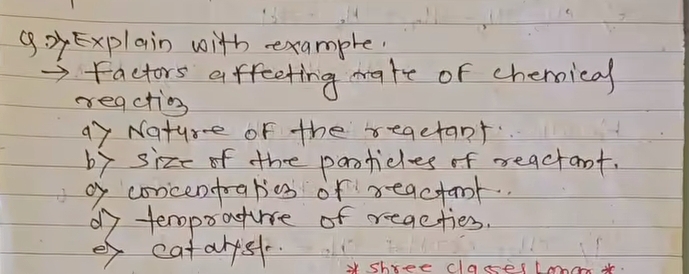 Q.2) Explain with example.
→ Factors affecting rate of chemical
reaction
a) Nature of the reactant.
b) Size of the particles of reactant.
c) concentration of reactant..
d) temprature of reaction.
e) catalyst.
* shree classes *